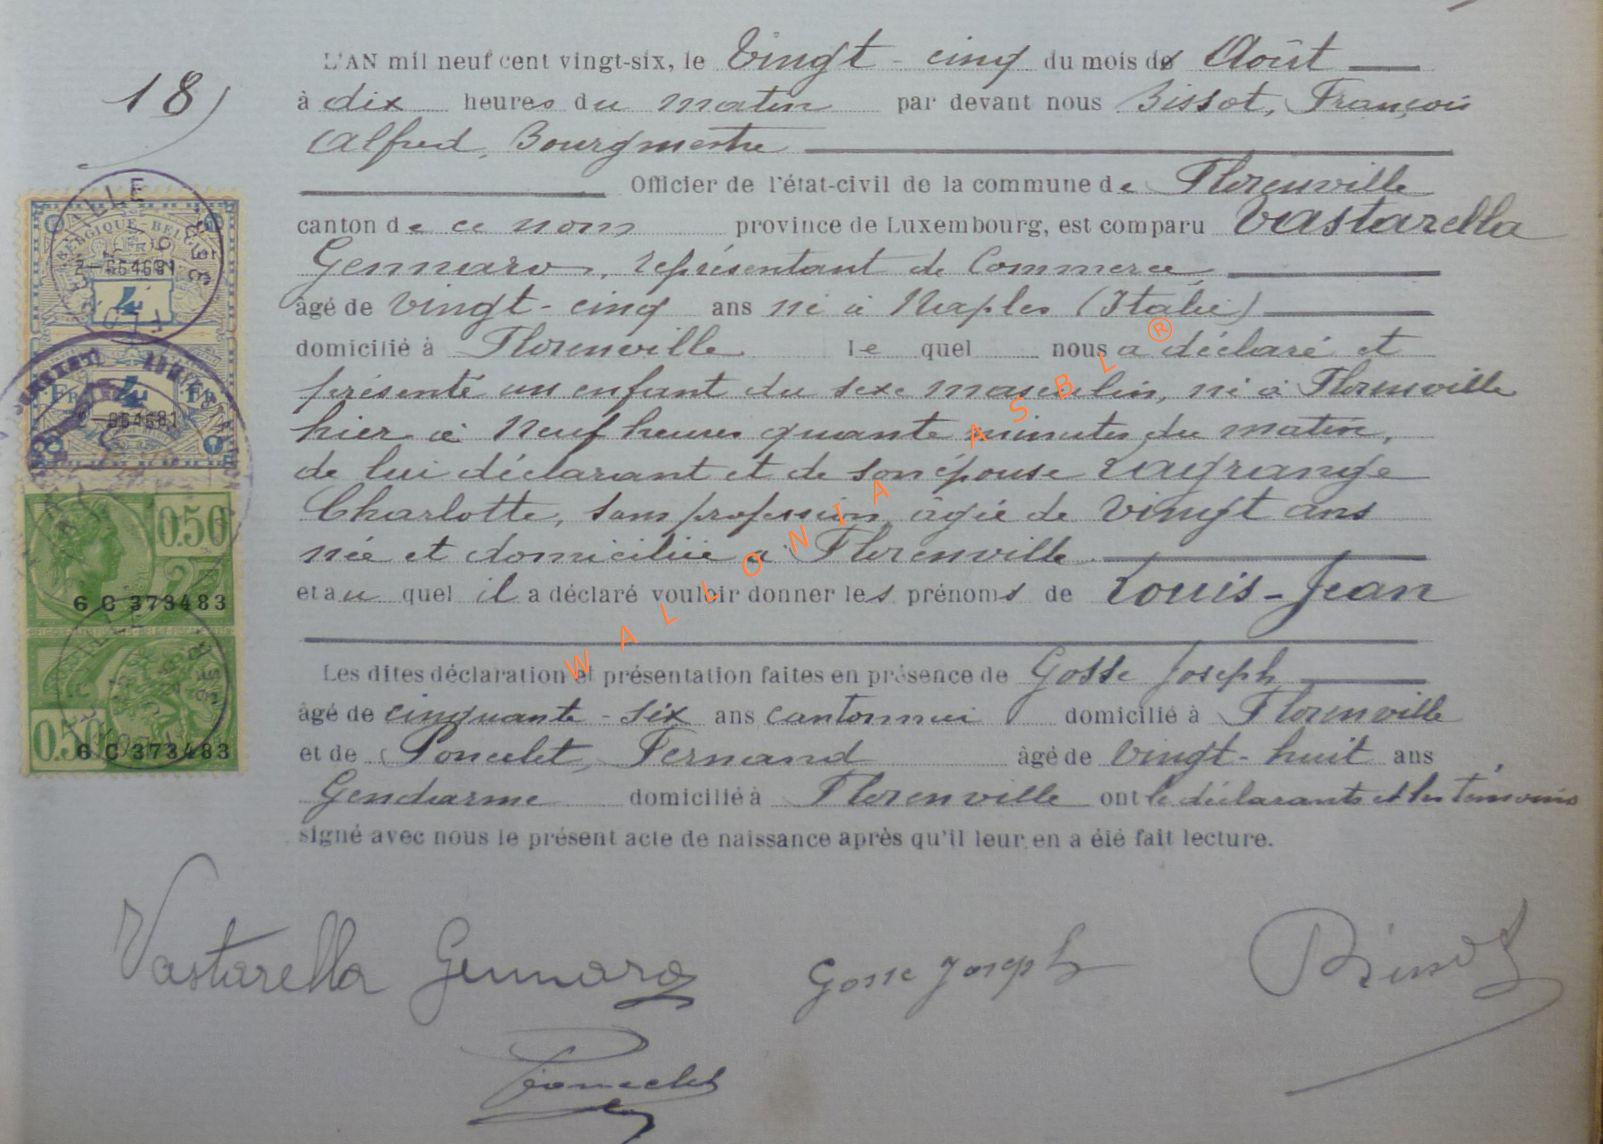 18)
L'AN mil neuf cent vingt-six, le Vingt-cinq du mois de Août
à dix heures du matin par devant nous Bissot, François
Alfred, Bourgmestre
Officier de l'état-civil de la commune de Florenville
canton de ce nom province de Luxembourg, est comparu Vastarella
Gennaro, représentant de Commerce
âgé de Vingt-cinq ans né à Naples (Italie)
domicilié à Florenville le quel nous a déclaré et
présenté un enfant du sexe masculin, né à Florenville
hier à Neuf heures quante minutes du matin,
de lui déclarant et de son épouse Lagrange
Charlotte, sans profession, âgée de vingt ans
née et domiciliée à Florenville
et au quel il a déclaré vouloir donner les prénoms de Louis-Jean
Les dites déclaration et présentation faites en présence de Gosse Joseph
âgé de cinquante-six ans cantonnier domicilié à Florenville
et de Poncelet, Fernand âgé de Vingt-huit ans
Gendarme domicilié à Florenville ont le déclarants et les témoins
signé avec nous le présent acte de naissance après qu'il leur en a été fait lecture.
Vastarella Gennaro Gosse Joseph Bissot
Poncelet
WALLONIA ASBL ®
BELGIQUE
4
2-864681
Fr 4 Fr
2-864681
0.50
6 C 373483
0.50
6 C 373483